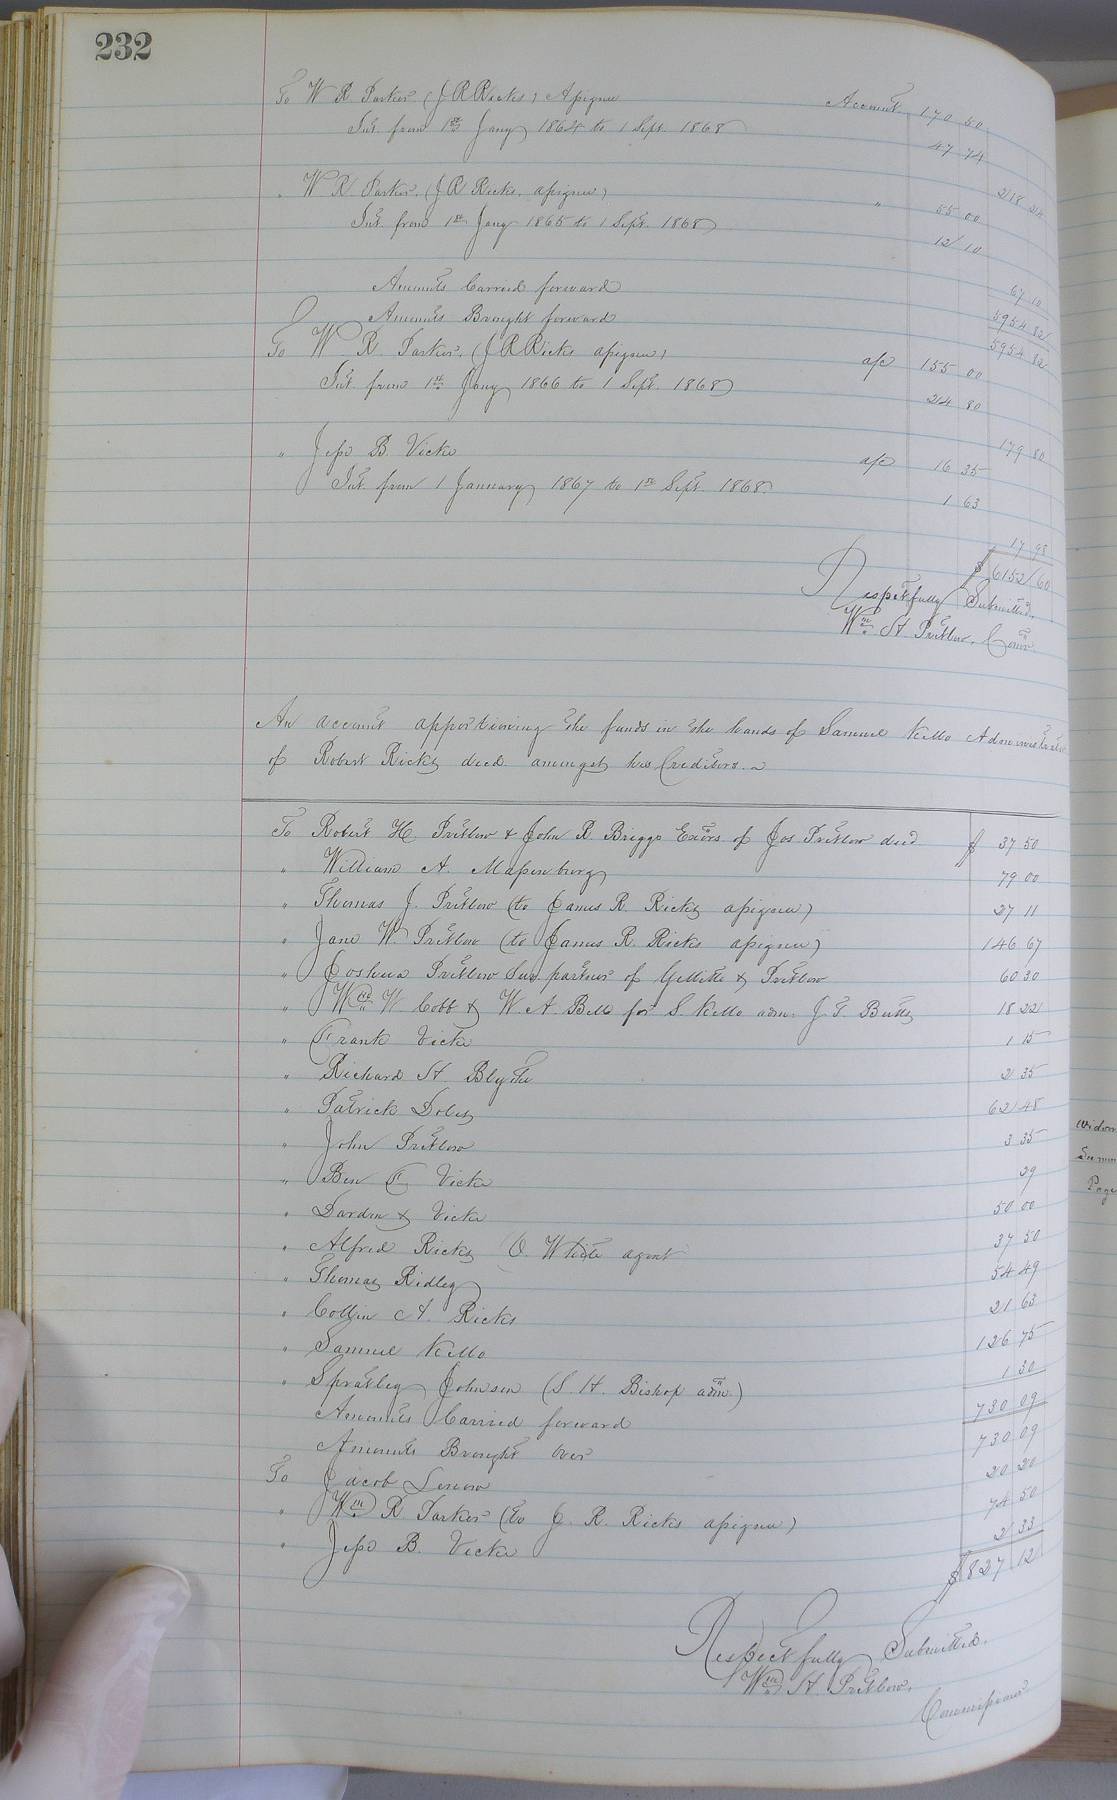 232
To W R Parker (J R Ricks) Assignee Account 170 50
Int. from 1st Jany 1864 to 1 Sept. 1868 47 74
218 24
" W R Parker, (J R Ricks, assignee) " 55 00
Int. from 1st Jany 1865 to 1 Sept. 1868 12 10
67 10
Amounts Carried forward 5954 82
Amounts Brought forward 5954 82
To W R. Parker, (J R Ricks assignee) a/c 155 00
Int. from 1st Jany 1866 to 1 Sept. 1868 24 80
179 80
" Jesse B. Vick a/c 16 35
Int. from 1 January 1867 to 1st Sept. 1868. 1 63
17 98
$ 6152 60
Respectfully Submitted,
Wm H Pretlow, Comr.
An account apportioning the funds in the hands of Samuel Kello Administrator
of Robert Ricks decd. amongst his Creditors.
To Robert H Pretlow & John R. Briggs Exors of Jos Pretlow decd $ 37 50
" William A. Massenburg 79 00
" Thomas J. Pretlow (to James R. Ricks assignee) 27 11
" Jane W. Pretlow (to James R. Ricks assignee) 146 67
" Joshua Pretlow Sur. partner of Gillette & Pretlow 60 30
" Wm W. Cobb & W. A. Bell for S. Kello adm. J. T. Butts 18 22
" Frank Vick 1 15
" Richard H Blythe 2 35
" Patrick Doles 62 48
" John Pretlow 3 35
" Ben F Vick 29
" Darden & Vick 50 00
" Alfred Ricks (O. White agent 37 50
" Thomas Ridley 54 49
" Collin A. Ricks 21 63
" Samuel Kello 126 75
" Spratley Johnson (S. H. Bishop adm.) 1 30
Amounts Carried forward 730 09
Amounts Brought over 730 09
To Jacob Lenow 20 20
" Wm R Parker (to J. R. Ricks assignee) 74 50
" Jesse B. Vick 2 33
$ 827 12
Respectfully Submitted.
Wm H. Pretlow,
Commissioner